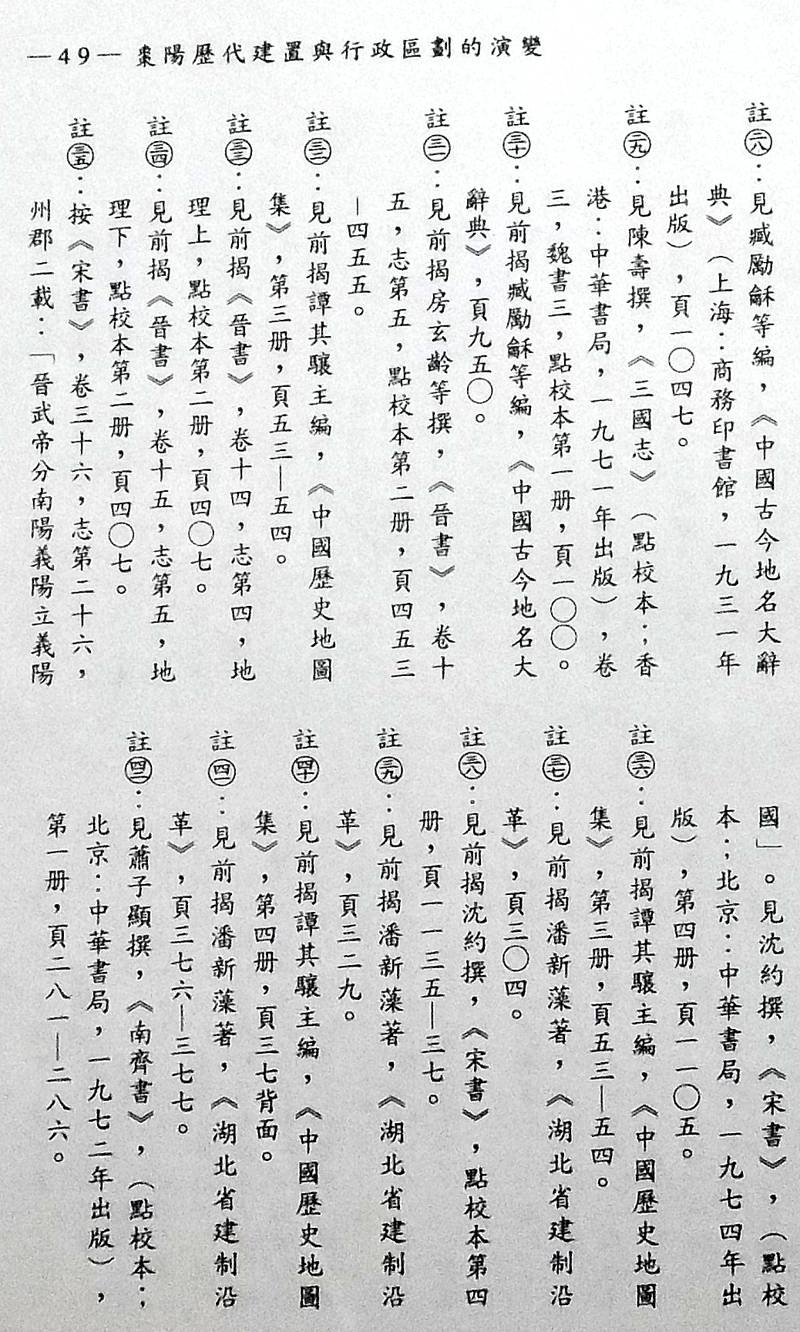 —49— 棗陽歷代建置與行政區劃的演變
註㉘：見臧勵龢等編，《中國古今地名大辭
典》（上海：商務印書館，一九三一年
出版），頁一〇四七。
註㉙：見陳壽撰，《三國志》（點校本；香
港：中華書局，一九七一年出版），卷
三，魏書三，點校本第一册，頁一〇〇。
註㉚：見前揭臧勵龢等編，《中國古今地名大
辭典》，頁九五〇。
註㉛：見前揭房玄齡等撰，《晉書》，卷十
五，志第五，點校本第二册，頁四五三
—四五五。
註㉜：見前揭譚其驤主編，《中國歷史地圖
集》，第三册，頁五三—五四。
註㉝：見前揭《晉書》，卷十四，志第四，地
理上，點校本第二册，頁四〇七。
註㉞：見前揭《晉書》，卷十五，志第五，地
理下，點校本第二册，頁四〇七。
註㉟：按《宋書》，卷三十六，志第二十六，
州郡二載：「晉武帝分南陽義陽立義陽
國」。見沈約撰，《宋書》，（點校
本；北京：中華書局，一九七四年出
版），第四册，頁一一〇五。
註㊱：見前揭譚其驤主編，《中國歷史地圖
集》，第三册，頁五三—五四。
註㊲：見前揭潘新藻著，《湖北省建制沿
革》，頁三〇四。
註㊳：見前揭沈約撰，《宋書》，點校本第四
册，頁一一三五—三七。
註㊴：見前揭潘新藻著，《湖北省建制沿
革》，頁三二九。
註㊵：見前揭譚其驤主編，《中國歷史地圖
集》，第四册，頁三七背面。
註㊶：見前揭潘新藻著，《湖北省建制沿
革》，頁三七六—三七七。
註㊷：見蕭子顯撰，《南齊書》，（點校本；
北京：中華書局，一九七二年出版），
第一册，頁二八一—二八六。